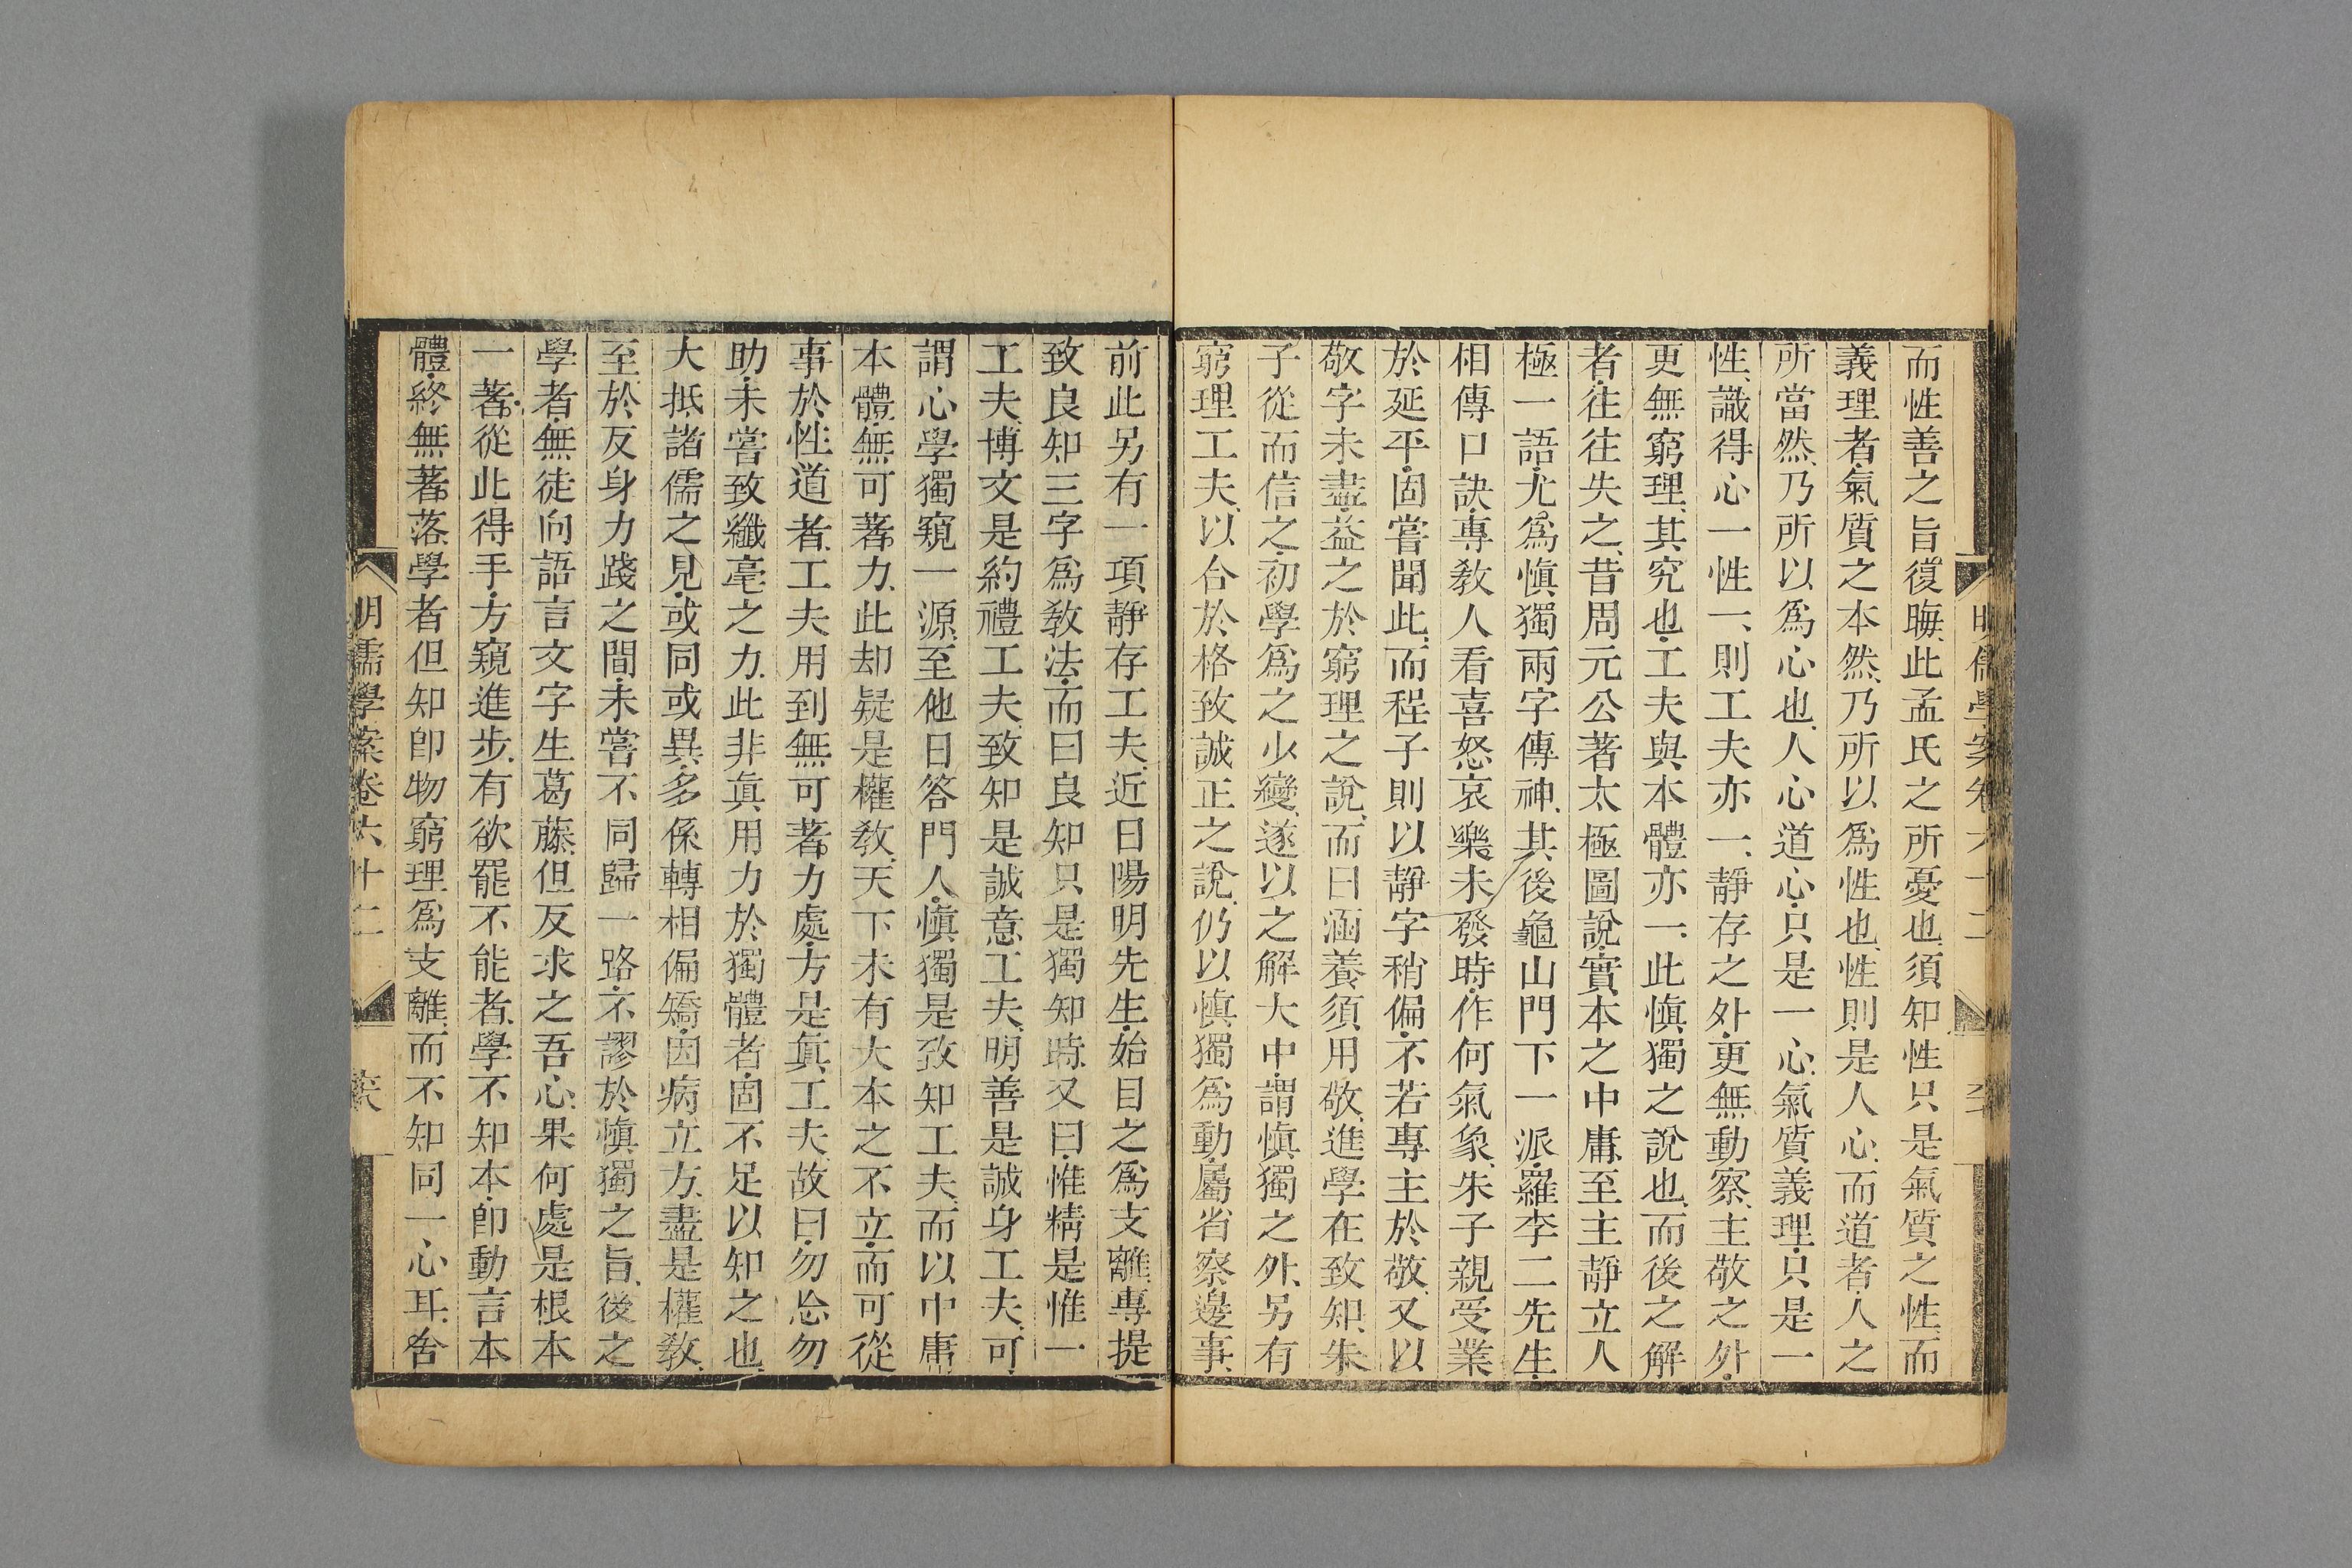 而性善之旨復晦、此孟氏之所憂也、須知性只是氣質之性、而
義理者、氣質之本然、乃所以爲性也、性則是人心、而道者、人之
所當然、乃所以爲心也、人心道心、只是一心、氣質義理、只是一
性、識得心一性一、則工夫亦一、靜存之外、更無動察、主敬之外、
更無窮理、其究也、工夫與本體亦一、此愼獨之說也、而後之解
者、往往失之、昔周元公著太極圖說、實本之中庸、至主靜立人
極一語、尤爲愼獨兩字傳神、其後龜山門下一派、羅李二先生、
相傳口訣、專教人看喜怒哀樂未發時、作何氣象、朱子親受業
於延平、固嘗聞此、而程子則以靜字稍偏、不若專主於敬、又以
敬字未盡、益之於窮理之說、而曰涵養須用敬、進學在致知、朱
子從而信之、初學爲之少變、遂以之解大中、謂愼獨之外、另有
窮理工夫、以合於格致誠正之說、仍以愼獨爲動、屬省察邊事、
前此另有一項靜存工夫、近日陽明先生、始目之爲支離、專提
致良知三字爲教法、而曰良知只是獨知時、又曰、惟精是惟一
工夫、博文是約禮工夫、致知是誠意工夫、明善是誠身工夫、可
謂心學獨窺一源、至他日答門人、愼獨是致知工夫、而以中庸
本體、無可著力、此却疑是權教、天下未有大本之不立、而可從
事於性道者、工夫用到無可著力處、方是眞工夫、故曰、勿忘勿
助、未嘗致纖毫之力、此非眞用力於獨體者、固不足以知之也、
大抵諸儒之見、或同或異、多係轉相偏矯、因病立方、盡是權教、
至於反身力踐之間、未嘗不同歸一路、不謬於愼獨之旨、後之
學者、無徒向語言文字生葛藤、但反求之吾心、果何處是根本
一著、從此得手、方窺進步、有欲罷不能者、學不知本、卽動言本
體、終無著落、學者但知卽物窮理爲支離、而不知同一心耳、舍
明儒學案卷六十二